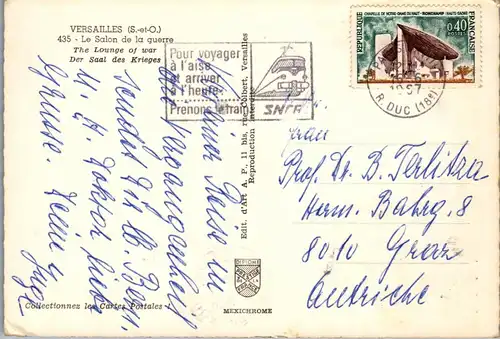 VERSAILLES (S.-et-O.)
435 - Le Salon de la guerre
The Lounge of war
Der Saal des Krieges
Pour voyager
à l'aise
et arriver
à l'heure...
Prenons le train
SNCF
CHAPELLE DE NOTRE-DAME DU HAUT - RONCHAMP (HAUTE-SAÔNE)
REPUBLIQUE FRANÇAISE
0,40
POSTES
R. DUC (18e)
Edit. d'Art A. P., 11 bis, rue Colbert, Versailles
Reproduction interdite
Reise in
die Vergangenheit
sendet Dir lb. Berg.
u. H. Doktor liebe
Grüsse. Deine
Inge
Frau
Prof. Dr. B. Terlitza
Herm. Bahrg. 8
8010 Graz
Autriche
DIPLOME
FRANCE
Collectionnez les Cartes Postales !
MEXICHROME